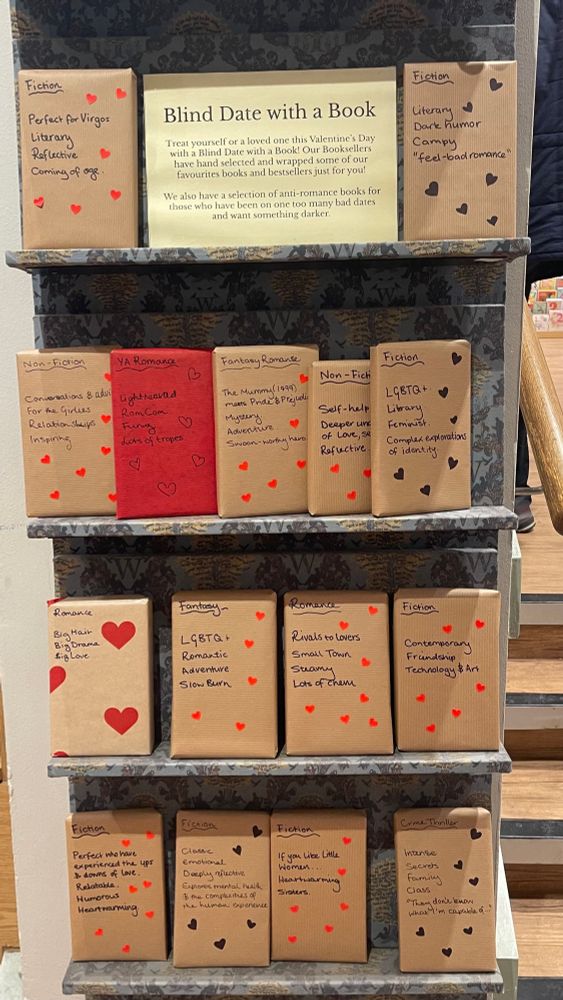 Fiction
Perfect for Virgos
Literary
Reflective
Coming of age.
Blind Date with a Book
Treat yourself or a loved one this Valentine's Day
with a Blind Date with a Book! Our Booksellers
have hand selected and wrapped some of our
favourites books and bestsellers just for you!
We also have a selection of anti-romance books for
those who have been on one too many bad dates
and want something darker.
Fiction
Literary
Dark humor
Campy
"feel-bad romance"
Non-Fiction
Conversations & advi
For the Girlies
Relationships
Inspiring
YA Romance
Lighthearted
RomCom
Funny
Lots of tropes
Fantasy Romance
The Mummy (1999)
meets Pride & Prejudi
Mystery
Adventure
Swoon-worthy hero
Non-Ficti
Self-help
Deeper und
of Love, se
Reflective
Fiction
LGBTQ+
Library
Feminist
Complex explorations
of identity
Romance
Big Hair
Big Drama
Big Love
Fantasy
LGBTQ+
Romantic
Adventure
Slow Burn
Romance
Rivals to lovers
Small Town
Steamy
Lots of Chem
Fiction
Contemporary
Friendship
Technology & Art
Fiction
Perfect who have
experienced the ups
& downs of love.
Relatable.
Humorous
Heartwarming
Fiction
Classic
Emotional
Deeply reflective
Explores mental health
& the complexities of
the human experience
Fiction
If you like Little
Women...
Heartwarming
Sisters
Crime Thriller
Intense
Secrets
Family
Class
"They don't know
what I'm capable of..."